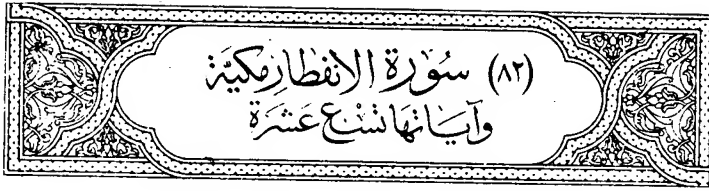 (٨٢) سُورَة الانفطار مكيّة
وآيَاتهَا تِسْعَ عَشَرَة